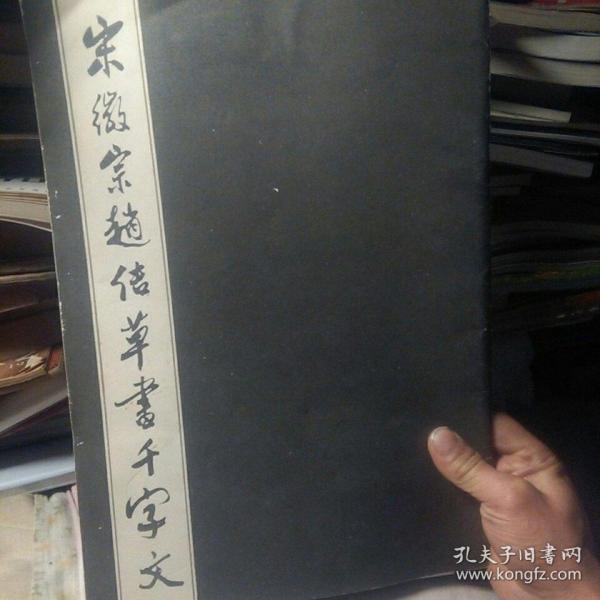 宋徽宗趙佶草書千字文
孔夫子旧書网
www.kongfz.com